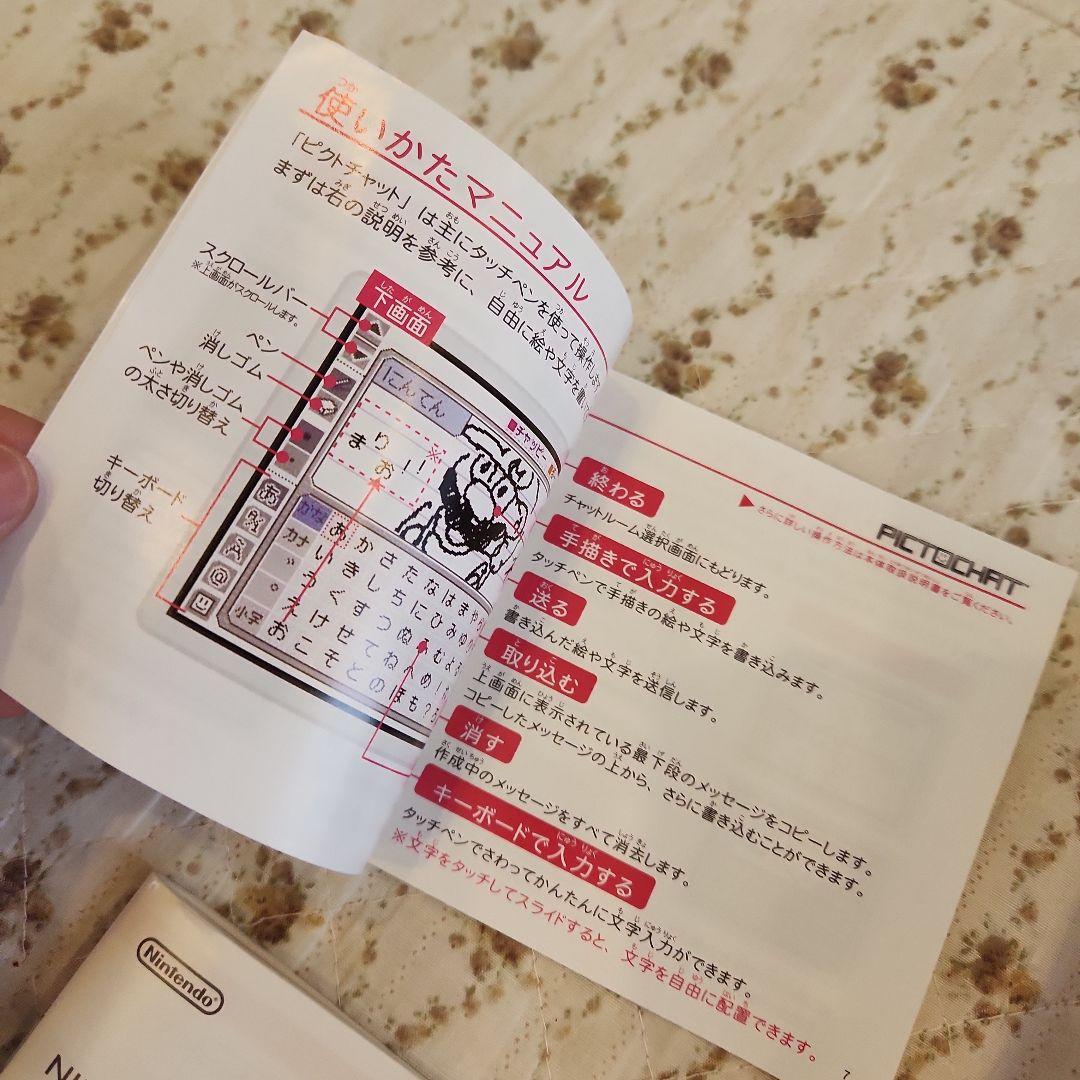 使いかたマニュアル
「ピクトチャット」は主にタッチペンを使って操作します
まずは右の説明を参考に、自由に絵や文字を書い
下画面
スクロールバー
※上画面がスクロールします。
ペン
消しゴム
ペンや消しゴム
の太さ切り替え
キーボード
切り替え
にんてん
チャッピー
まりお!!
※
かな
カナ
小字
あかさたなはまやら
いきしちにひみゆり
うくすつぬふむよ
えけせてねへめ
おこそとのほも?
PICTOCHAT
さらに詳しい操作方法は本体取扱説明書をご覧ください。
終わる
チャットルーム選択画面にもどります。
手描きで入力する
タッチペンで手描きの絵や文字を書き込みます。
送る
書き込んだ絵や文字を送信します。
取り込む
上画面に表示されている最下段のメッセージをコピーします。
コピーしたメッセージの上から、さらに書き込むことができます。
消す
作成中のメッセージをすべて消去します。
キーボードで入力する
タッチペンでさわってかんたんに文字入力ができます。
※文字をタッチしてスライドすると、文字を自由に配置できます。
7
Nintendo